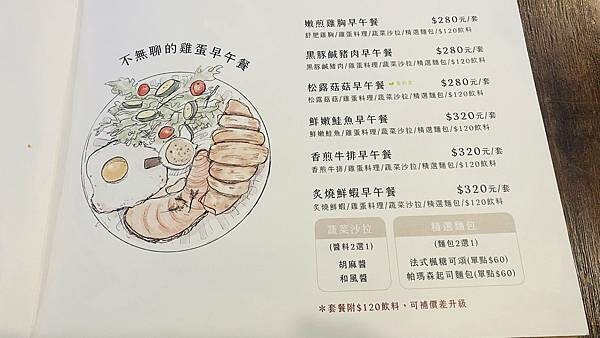 不無聊的雞蛋早午餐
嫩煎雞胸早午餐 $280元/套
舒肥雞胸/雞蛋料理/蔬菜沙拉/精選麵包/$120飲料
黑豚鹹豬肉早午餐 $280元/套
黑豚鹹豬肉/雞蛋料理/蔬菜沙拉/精選麵包/$120飲料
松露菇菇早午餐 $280元/套
松露菇菇/雞蛋料理/蔬菜沙拉/精選麵包/$120飲料
鮮嫩鮭魚早午餐 $320元/套
鮮嫩鮭魚/雞蛋料理/蔬菜沙拉/精選麵包/$120飲料
香煎牛排早午餐 $320元/套
香煎牛排/雞蛋料理/蔬菜沙拉/精選麵包/$120飲料
炙燒鮮蝦早午餐 $320元/套
炙燒鮮蝦/雞蛋料理/蔬菜沙拉/精選麵包/$120飲料
蔬菜沙拉
(醬料2選1)
胡麻醬
和風醬
精選麵包
(麵包2選1)
法式楓糖可頌(單點$60)
帕瑪森起司麵包(單點$60)
＊套餐附$120飲料，可補價差升級